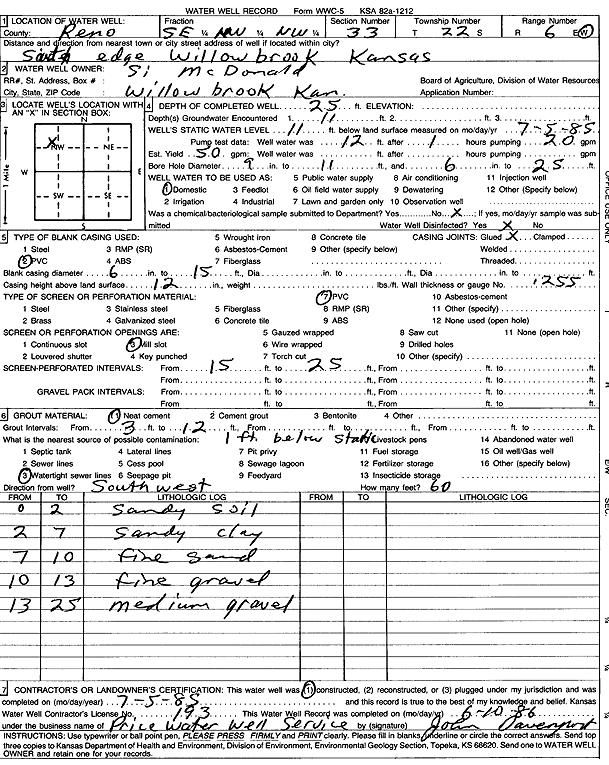 WATER WELL RECORD Form WWC-5 KSA 82a-1212
1 LOCATION OF WATER WELL: Fraction Section Number Township Number Range Number
County: Reno SE ¼ NW ¼ NW ¼ 33 T 22 S R 6 E(W)
Distance and direction from nearest town or city street address of well if located within city?
South edge Willowbrook Kansas
2 WATER WELL OWNER: Si McDonald
RR#, St. Address, Box # : Board of Agriculture, Division of Water Resources
City, State, ZIP Code : Willowbrook Kan. Application Number:
3 LOCATE WELL'S LOCATION WITH AN "X" IN SECTION BOX:
N
X NW NE
W E
SW SE
S
1 Mile
4 DEPTH OF COMPLETED WELL 25 ft. ELEVATION:
Depth(s) Groundwater Encountered 1. 11 ft. 2. ft. 3. ft.
WELL'S STATIC WATER LEVEL 11 ft. below land surface measured on mo/day/yr 7-5-85
Pump test data: Well water was 12 ft. after 1 hours pumping 20 gpm
Est. Yield 50 gpm: Well water was ft. after hours pumping gpm
Bore Hole Diameter 9 in. to 11 ft., and 6 in. to 25 ft.
WELL WATER TO BE USED AS: 5 Public water supply 8 Air conditioning 11 Injection well
1 Domestic 3 Feedlot 6 Oil field water supply 9 Dewatering 12 Other (Specify below)
2 Irrigation 4 Industrial 7 Lawn and garden only 10 Observation well
Was a chemical/bacteriological sample submitted to Department? Yes No X ; If yes, mo/day/yr sample was submitted Water Well Disinfected? Yes X No
5 TYPE OF BLANK CASING USED: 5 Wrought iron 8 Concrete tile CASING JOINTS: Glued X Clamped
1 Steel 3 RMP (SR) 6 Asbestos-Cement 9 Other (specify below) Welded
2 PVC 4 ABS 7 Fiberglass Threaded
Blank casing diameter 6 in. to 15 ft., Dia in. to ft., Dia in. to ft.
Casing height above land surface 12 in., weight lbs./ft. Wall thickness or gauge No. .255
TYPE OF SCREEN OR PERFORATION MATERIAL: 7 PVC 10 Asbestos-cement
1 Steel 3 Stainless steel 5 Fiberglass 8 RMP (SR) 11 Other (specify)
2 Brass 4 Galvanized steel 6 Concrete tile 9 ABS 12 None used (open hole)
SCREEN OR PERFORATION OPENINGS ARE: 5 Gauzed wrapped 8 Saw cut 11 None (open hole)
1 Continuous slot 3 Mill slot 6 Wire wrapped 9 Drilled holes
2 Louvered shutter 4 Key punched 7 Torch cut 10 Other (specify)
SCREEN-PERFORATED INTERVALS: From 15 ft. to 25 ft., From ft. to ft.
From ft. to ft., From ft. to ft.
GRAVEL PACK INTERVALS: From ft. to ft., From ft. to ft.
From ft. to ft., From ft. to ft.
6 GROUT MATERIAL: 1 Neat cement 2 Cement grout 3 Bentonite 4 Other
Grout Intervals: From 3 ft. to 12 ft., From ft. to ft., From ft. to ft.
What is the nearest source of possible contamination: 1 ft below static Livestock pens 14 Abandoned water well
1 Septic tank 4 Lateral lines 7 Pit privy 11 Fuel storage 15 Oil well/Gas well
2 Sewer lines 5 Cess pool 8 Sewage lagoon 12 Fertilizer storage 16 Other (specify below)
3 Watertight sewer lines 6 Seepage pit 9 Feedyard 13 Insecticide storage
Direction from well? Southwest How many feet? 60
FROM TO LITHOLOGIC LOG FROM TO LITHOLOGIC LOG
0 2 Sandy soil
2 7 sandy clay
7 10 fine sand
10 13 fine gravel
13 25 medium gravel
7 CONTRACTOR'S OR LANDOWNER'S CERTIFICATION: This water well was (1) constructed, (2) reconstructed, or (3) plugged under my jurisdiction and was
completed on (mo/day/year) 7-5-85 and this record is true to the best of my knowledge and belief. Kansas
Water Well Contractor's License No. 193 This Water Well Record was completed on (mo/day/yr) 6-10-86
under the business name of Price Water Well Service by (signature) John Davenport
INSTRUCTIONS: Use typewriter or ball point pen, PLEASE PRESS FIRMLY and PRINT clearly. Please fill in blanks, underline or circle the correct answers. Send top
three copies to Kansas Department of Health and Environment, Division of Environment, Environmental Geology Section, Topeka, KS 66620. Send one to WATER WELL
OWNER and retain one for your records.
OFFICE USE ONLY
T
R
E/W
SEC